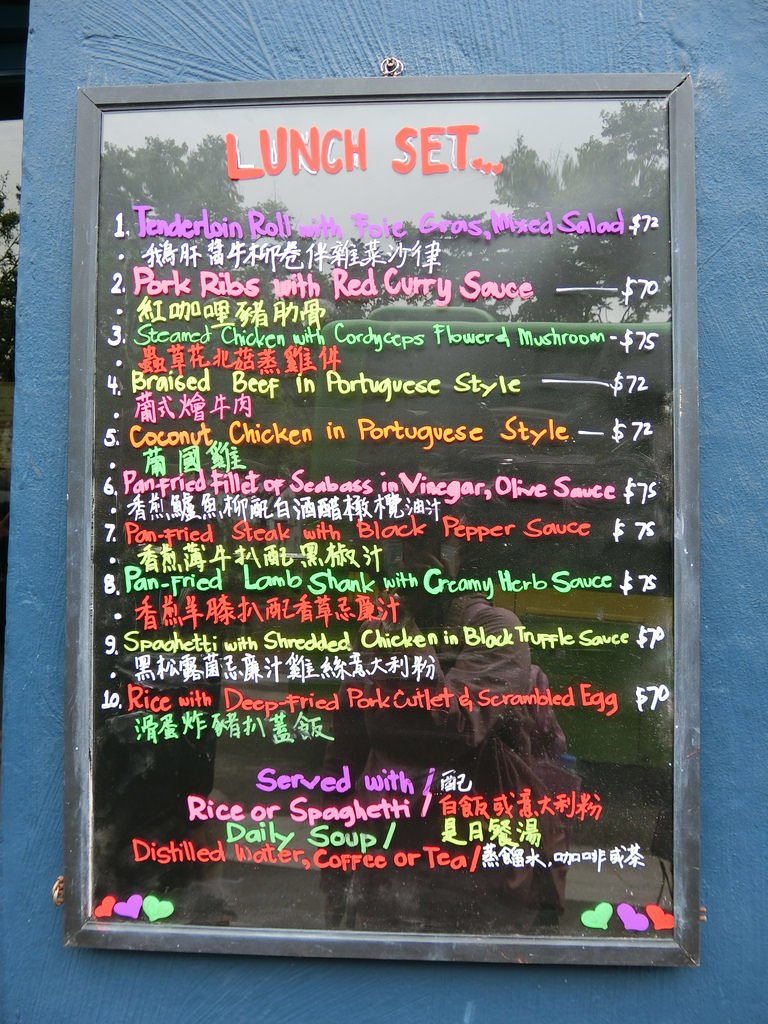 LUNCH SET...
1. Tenderloin Roll with Foie Gras, Mixed Salad $72
鵝肝醬牛柳卷伴雜菜沙律
2. Pork Ribs with Red Curry Sauce — $70
紅咖喱豬肋骨
3. Steamed Chicken with Cordyceps Flower & Mushroom - $75
蟲草花北菇蒸雞件
4. Braised Beef in Portuguese Style — $72
葡式燴牛肉
5. Coconut Chicken in Portuguese Style — $72
葡國雞
6. Pan-fried Fillet of Seabass in Vinegar, Olive Sauce $75
香煎鱸魚柳配白酒醋橄欖油汁
7. Pan-fried Steak with Black Pepper Sauce $75
香煎薄牛扒配黑椒汁
8. Pan-fried Lamb Shank with Creamy Herb Sauce $75
香煎羊膝扒配香草忌廉汁
9. Spaghetti with Shredded Chicken in Black Truffle Sauce $70
黑松露菌忌廉汁雞絲意大利粉
10. Rice with Deep-Fried Pork Cutlet & Scrambled Egg $70
滑蛋炸豬扒蓋飯
Served with / 配
Rice or Spaghetti / 白飯或意大利粉
Daily Soup / 是日餐湯
Distilled Water, Coffee or Tea / 蒸餾水, 咖啡或茶